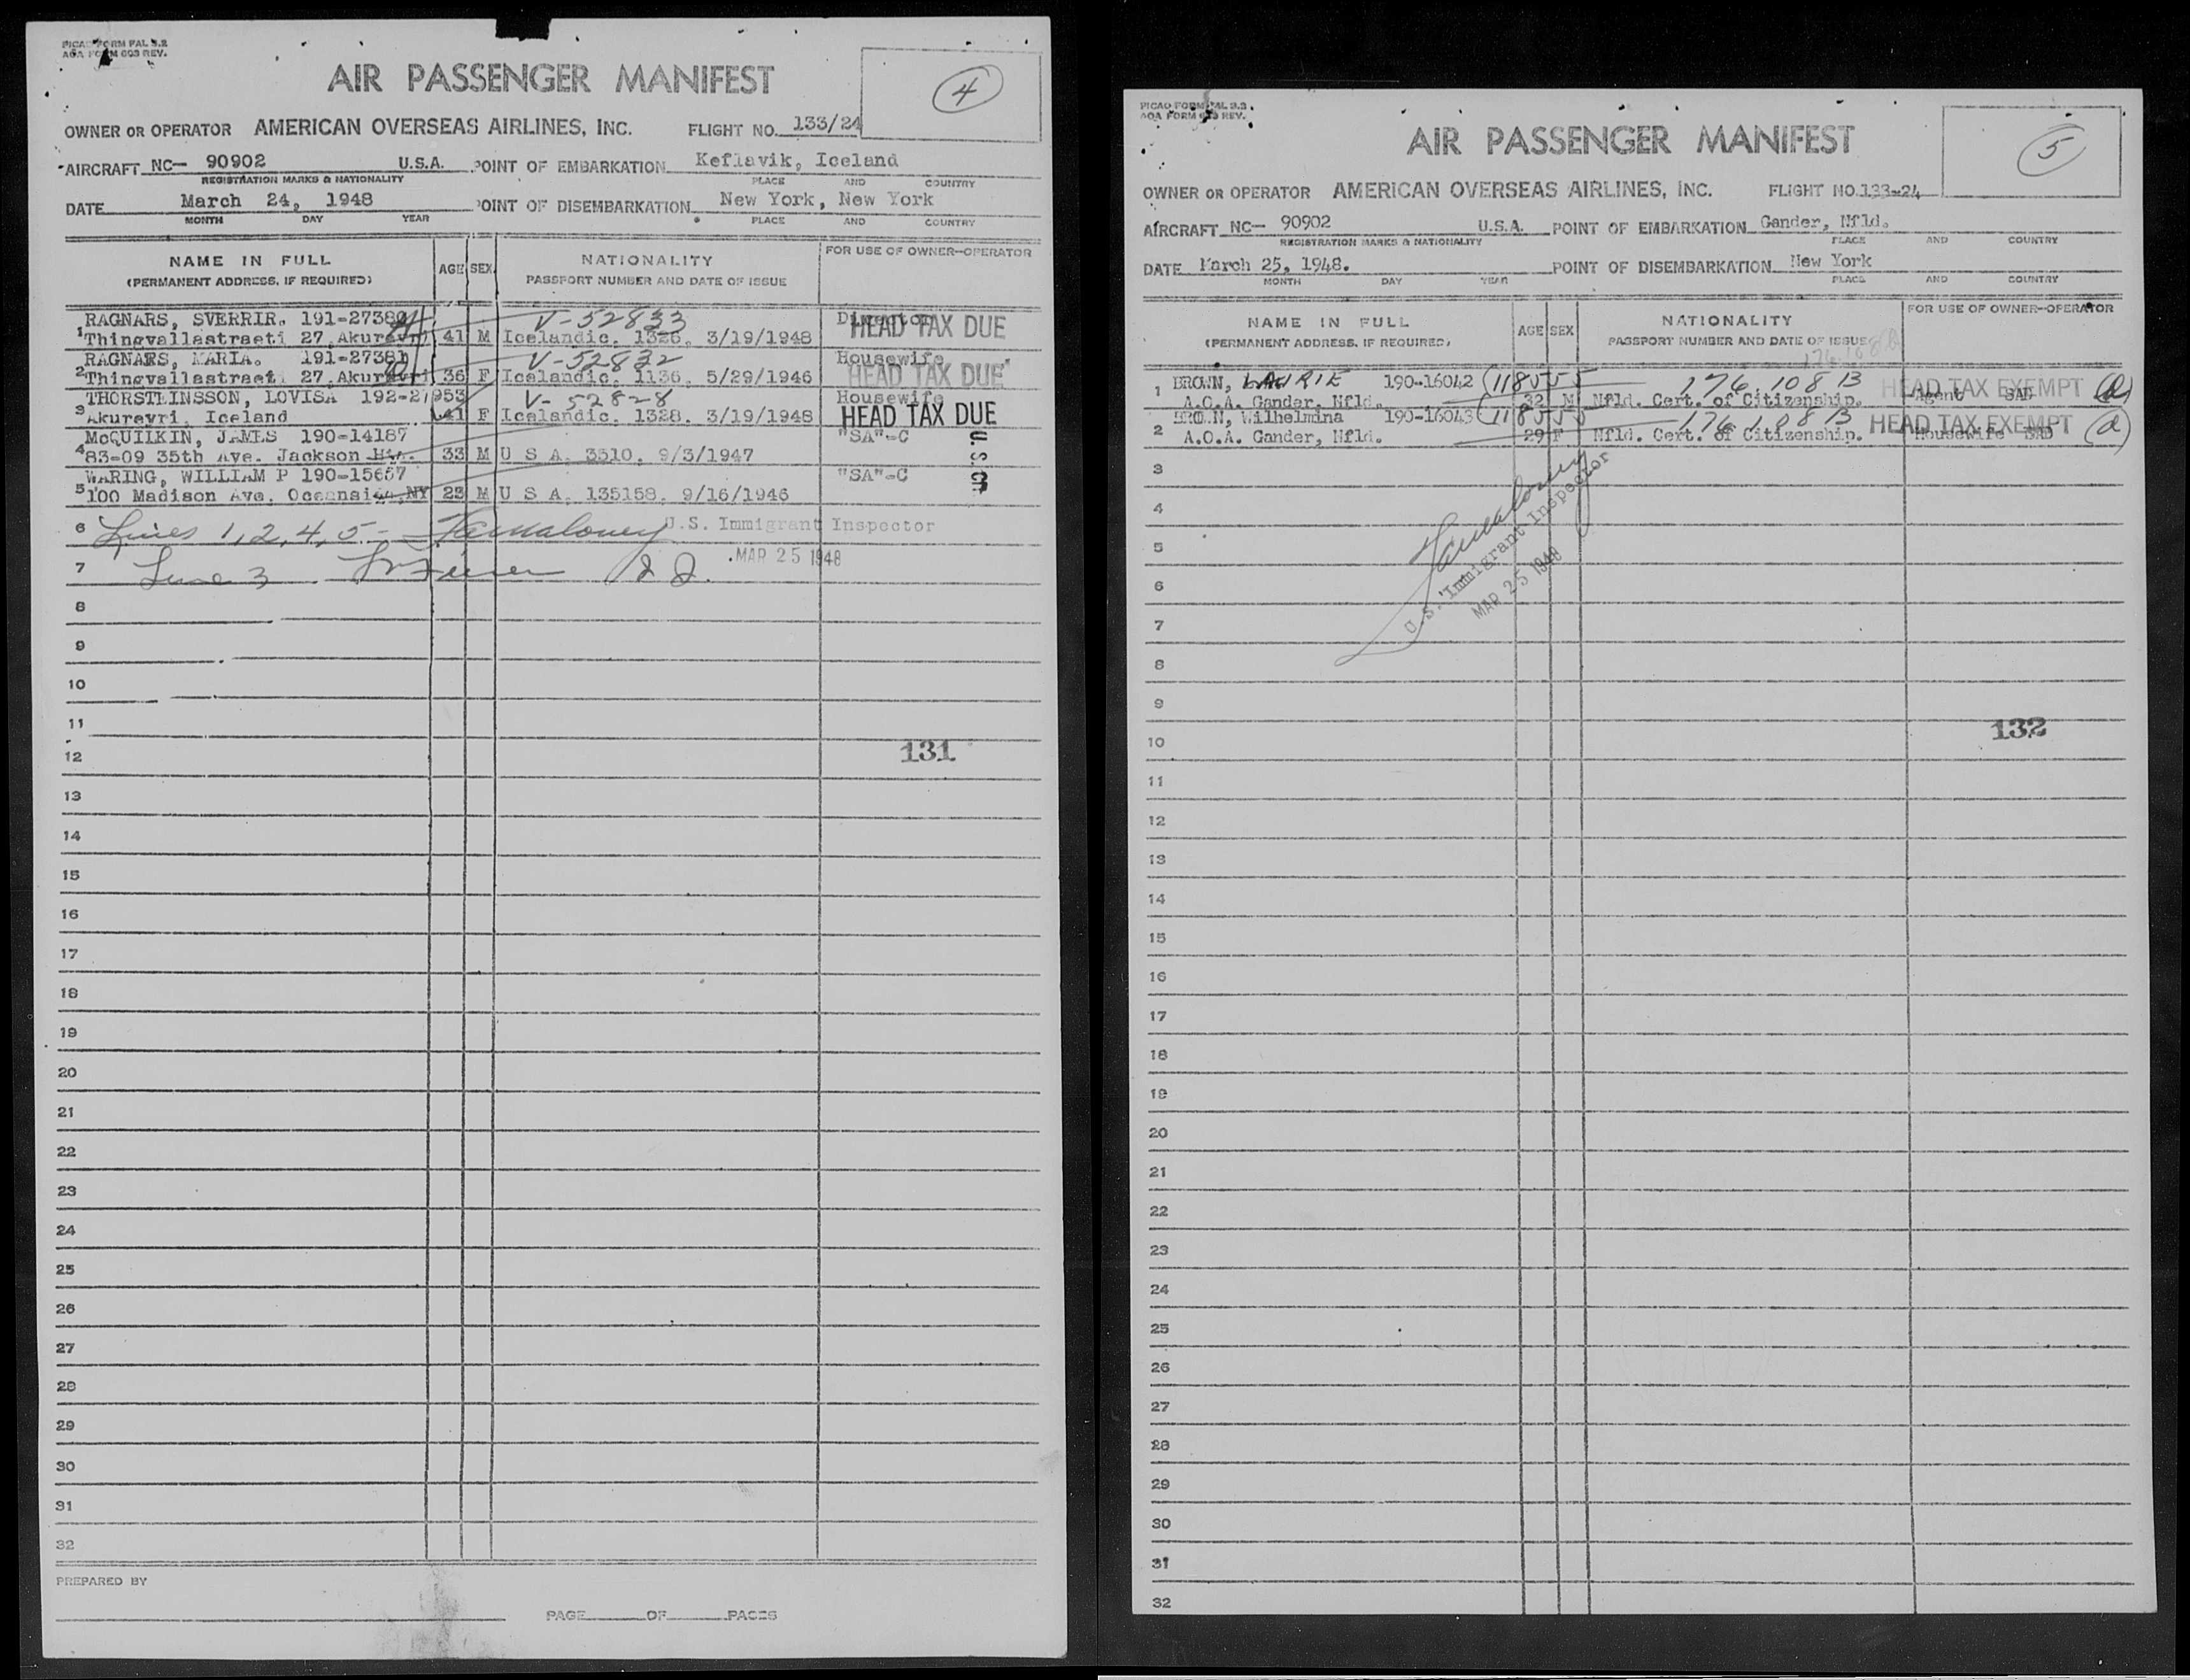 PICAO FORM PAL 3.2
AOA FORM 603 REV.
AIR PASSENGER MANIFEST
4
OWNER OR OPERATOR AMERICAN OVERSEAS AIRLINES, INC. FLIGHT NO. 133/24
AIRCRAFT NC— 90902 U.S.A. POINT OF EMBARKATION Keflavik, Iceland
REGISTRATION MARKS & NATIONALITY PLACE AND COUNTRY
DATE March 24, 1948 POINT OF DISEMBARKATION New York, New York
MONTH DAY YEAR PLACE AND COUNTRY
NAME IN FULL AGE SEX NATIONALITY FOR USE OF OWNER-OPERATOR
(PERMANENT ADDRESS, IF REQUIRED) PASSPORT NUMBER AND DATE OF ISSUE
RAGNARS, SVERRIR. 191-27380 V-52833 Director
1 Thingvallastraeti 27 Akureyri 41 M Icelandic. 1326, 3/19/1948 HEAD TAX DUE
RAGNARS, MARIA. 191-27381 V-52832 Housewife
2 Thingvallastraeti 27 Akureyri 36 F Icelandic. 1136, 5/29/1946 HEAD TAX DUE
THORSTEINSSON, LOVISA 192-27953 V-52828 Housewife
3 Akureyri, Iceland 41 F Icelandic. 1328. 3/19/1948 HEAD TAX DUE
McQUILKIN, JAMES 190-14187 "SA"-C
4 83-09 35th Ave. Jackson Hts. 33 M U S A. 3510, 9/3/1947 U.S.C
WARING, WILLIAM P 190-15657 "SA"-C
5 100 Madison Ave. Oceanside, NY 23 M U S A. 135158. 9/16/1946
6 Lines 1, 2, 4, 5 - U.S. Immigrant Inspector
7 Line 3 MAR 25 1948
8
9
10
11
12 131
13
14
15
16
17
18
19
20
21
22
23
24
25
26
27
28
29
30
31
32
PREPARED BY
PAGE OF PAGES
PICAO FORM PAL 3.2
AOA FORM 603 REV.
AIR PASSENGER MANIFEST
5
OWNER OR OPERATOR AMERICAN OVERSEAS AIRLINES, INC. FLIGHT NO. 133-24
AIRCRAFT NC— 90902 U.S.A. POINT OF EMBARKATION Gander, Nfld.
REGISTRATION MARKS & NATIONALITY PLACE AND COUNTRY
DATE March 25, 1948. POINT OF DISEMBARKATION New York
MONTH DAY YEAR PLACE AND COUNTRY
NAME IN FULL AGE SEX NATIONALITY FOR USE OF OWNER-OPERATOR
(PERMANENT ADDRESS, IF REQUIRED) PASSPORT NUMBER AND DATE OF ISSUE
1 BROWN, LAURIE 190-16042 (118555 176.108 13 HEAD TAX EXEMPT
A.O.A. Gander, Nfld. 32 M Nfld. Cert. of Citizenship. Agent SAD
BROWN, Wilhelmina 190-16043 (118555 176108 13 HEAD TAX EXEMPT
2 A.O.A. Gander, Nfld. 29 F Nfld. Cert. of Citizenship. Housewife SAD
3
4
5
U.S. Immigrant Inspector
6
MAR 25 1948
7
8
9
132
10
11
12
13
14
15
16
17
18
19
20
21
22
23
24
25
26
27
28
29
30
31
32